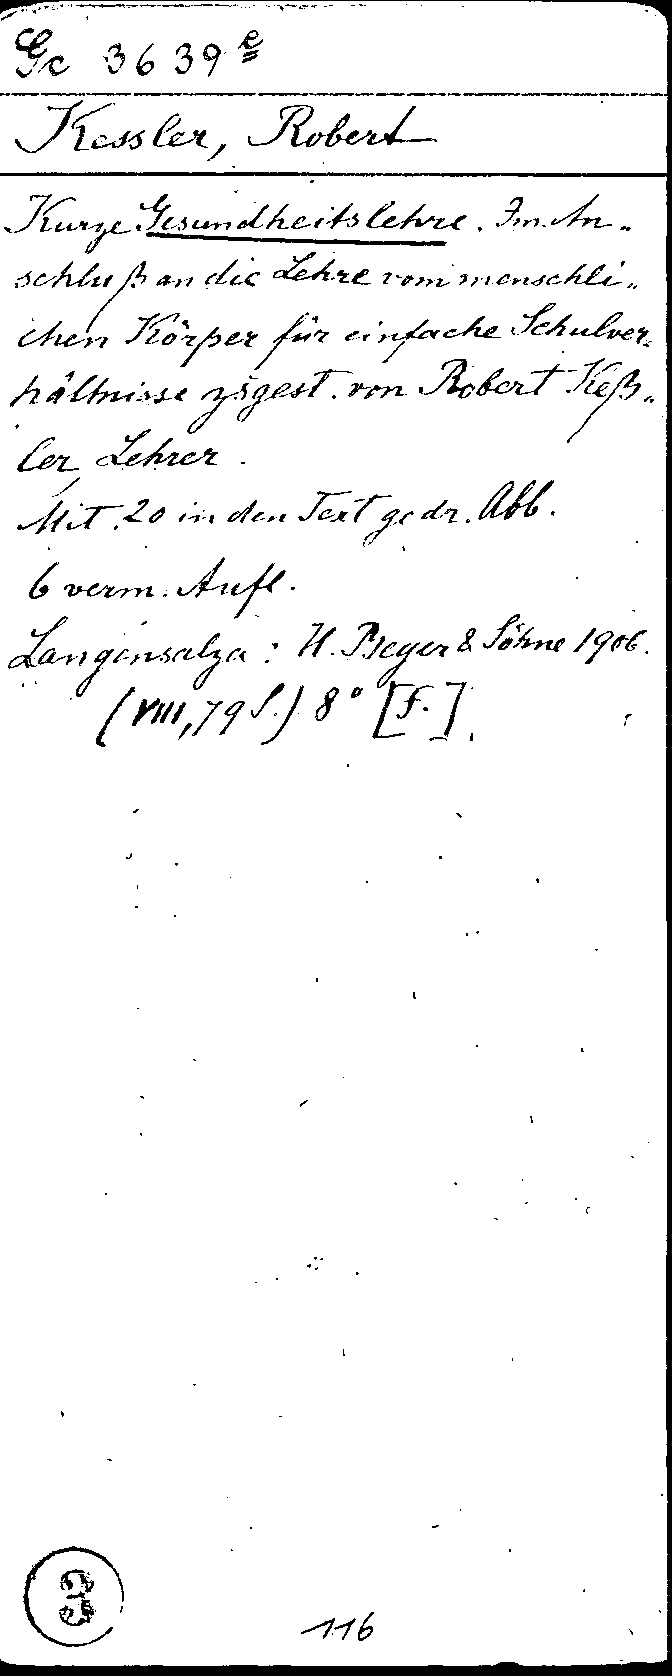 Gc 3639 e
Kessler, Robert
Kurze Gesundheitslehre. Im An„
schluß an die Lehre vom menschli„
chen Körper für einfache Schulver„
hältnisse zsgest. von Robert Keß„
ler Lehrer.
Mit 20 in den Text gedr. Abb.
6 verm. Aufl.
Langensalza: H. Beyer & Söhne 1906.
(VIII, 79 S.) 8° [F.]
3
116